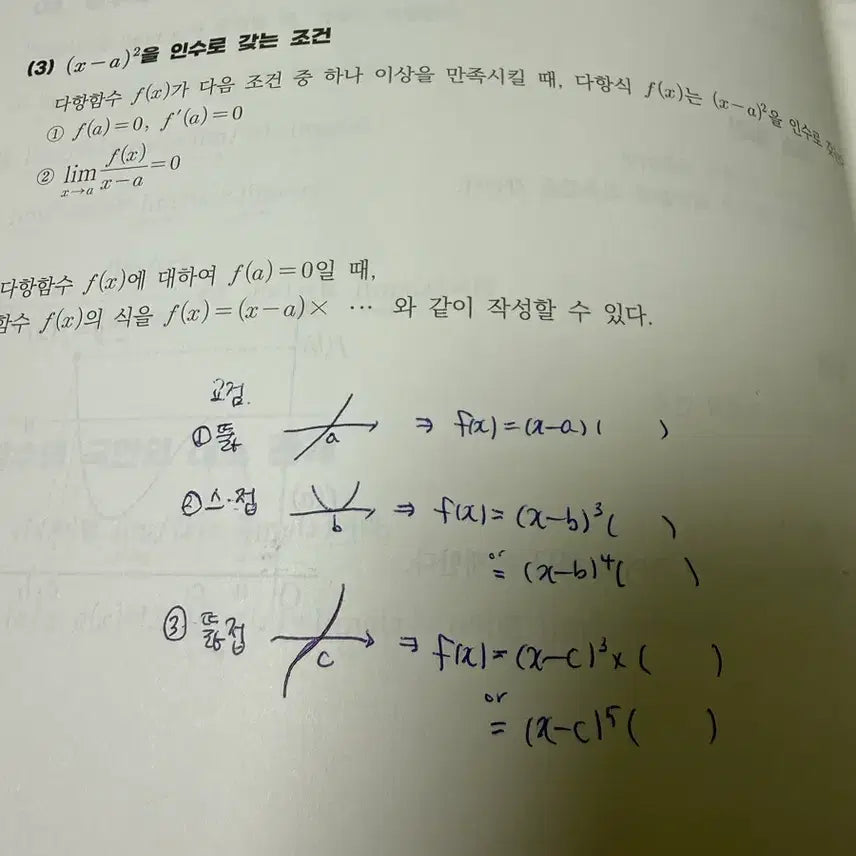 (3) (x-a)²을 인수로 갖는 조건
다항함수 f(x)가 다음 조건 중 하나 이상을 만족시킬 때, 다항식 f(x)는 (x-a)²을 인수로
① f(a)=0, f'(a)=0
② lim_{x→a} f(x)/(x-a) =0
다항함수 f(x)에 대하여 f(a)=0일 때,
함수 f(x)의 식을 f(x)=(x-a)× ⋯ 와 같이 작성할 수 있다.
요점.
①뚫 a ⇒ f(x)=(x-a)( )
②스.접 b ⇒ f(x)=(x-b)³( )
or = (x-b)⁴( )
③ 뚫접 c ⇒ f(x)=(x-c)³×( )
or = (x-c)⁵( )